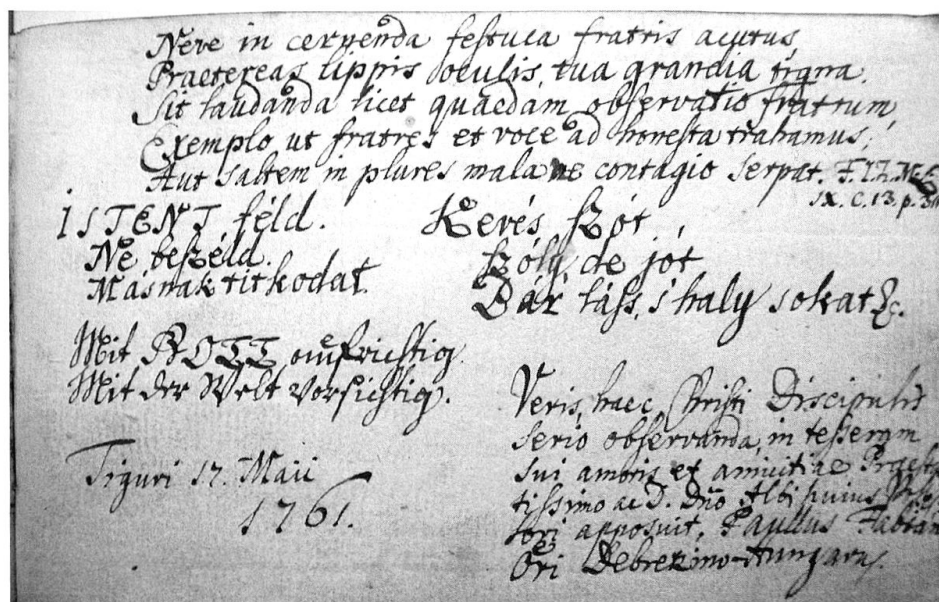 Neve in cerpenda festuca fratris acutus,
Praetereas lippis oculis, tua grandia tigna.
Sit laudanda licet quaedam observatio fratrum
Exemplo ut fratres et voce ad honesta trahamus;
Aut saltem in plures mala ne contagio serpat.
IX. C. 13. p.
ISTENT féld.
Ne beszéld
Másnak titkodat.
Kevés szót
szóly, de jót
Bár láss, 's haly sokat &c.
Mit GOTT aufrichtig
Mit der Welt vorsichtig.
Tiguri 17. Maii
1761.
Veris haec Christi Discipulis
serio observanda, in tesseram
sui amoris et amicitiae
tissimo ac D. Dño Albi huius
sori apposuit, Paullus
Öri Debrezino-Hungarus.